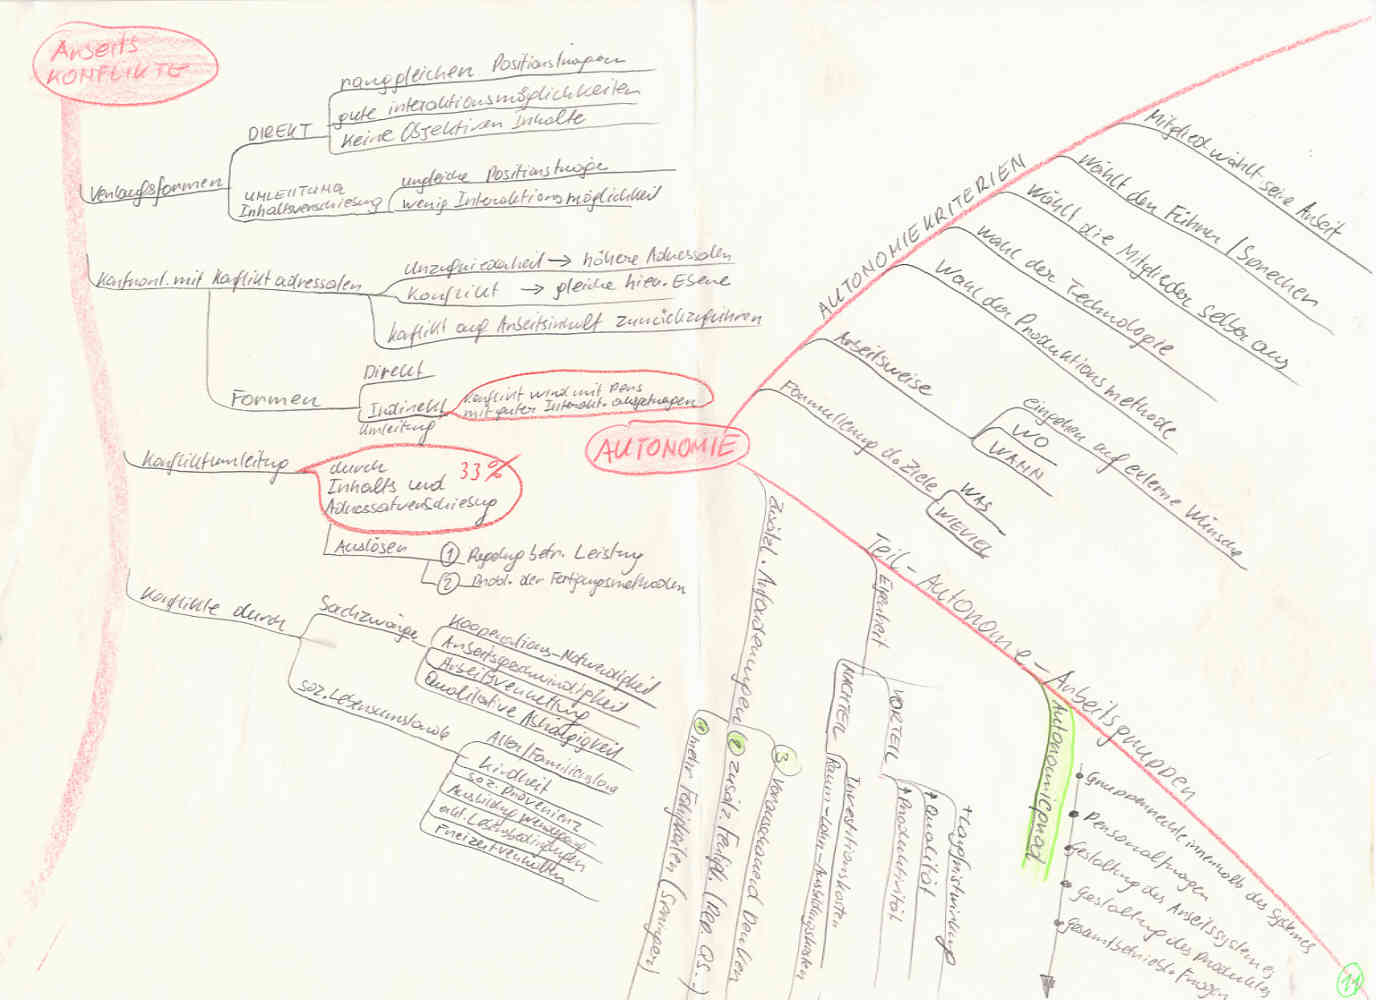 Arbeits
KONFLIKTE
Verlaufsformen
DIREKT
ranggleichen Positionsträgern
gute interaktionsmöglichkeiten
Keine Objektiven Inhalte
UMLEITUNG
Inhaltsverschiebung
ungleiche Positionsträger
wenig Interaktionsmöglichkeit
Konfront. mit Konflikt adressaten
Unzufriedenheit → höhere Adressaten
Konflikt → gleiche hier. Ebene
Konflikt auf Arbeitsinhalt zurückzuführen
Formen
Direkt
Indirekt
Umleitung
Konflikt wird mit Pers
mit guter Interakt. ausgetragen
Konfliktumleitung
durch 33%
Inhalts und
Adressatverschiebung
Auslösen
1 Regelung betr. Leistung
2 der Fertigungsmethoden
Konflikte durch
Sachzwänge
Kooperations-Notwendigkeit
Arbeitsgeschwindigkeit
Arbeitsverteilung
Qualitative Abhängigkeit
soz. Lebensumstände
Alter/Familienstand
Kindheit
soz. Provenienz
Ausbildung Werdegang
Lebensbedingungen
Freizeitverhalten
AUTONOMIE
AUTONOMIEKRITERIEN
Mitglied wählt seine Arbeit
wählt den Führer / Sprecher
wählt die Mitglieder selber aus
Wahl der Technologie
Wahl der Produktionsmethode
Arbeitsweise
eingehen auf externe Wünsche
WO
WANN
Formulierung d. Ziele
WAS
WIEVIEL
Teil-Autonome-Arbeitsgruppen
Zusätzl. Anforderungen
1 mehr Fähigkeiten (Springer)
2 zusätz. Fertigk. (Rep. QS.-)
3 Vorausschauend Denken
Eigenheit
NACHTEIL
Investitionskosten
Raum-Lohn-Ausbildungskosten
VORTEIL
↑ Produktivität
↑ Qualität
Autonomiegrad
Gruppenrechte innerhalb des Systemes
Personalfragen
Gestaltung des Arbeitssystemes
Gestaltung des Produktes
Gesamtbetriebl. Fragen
11